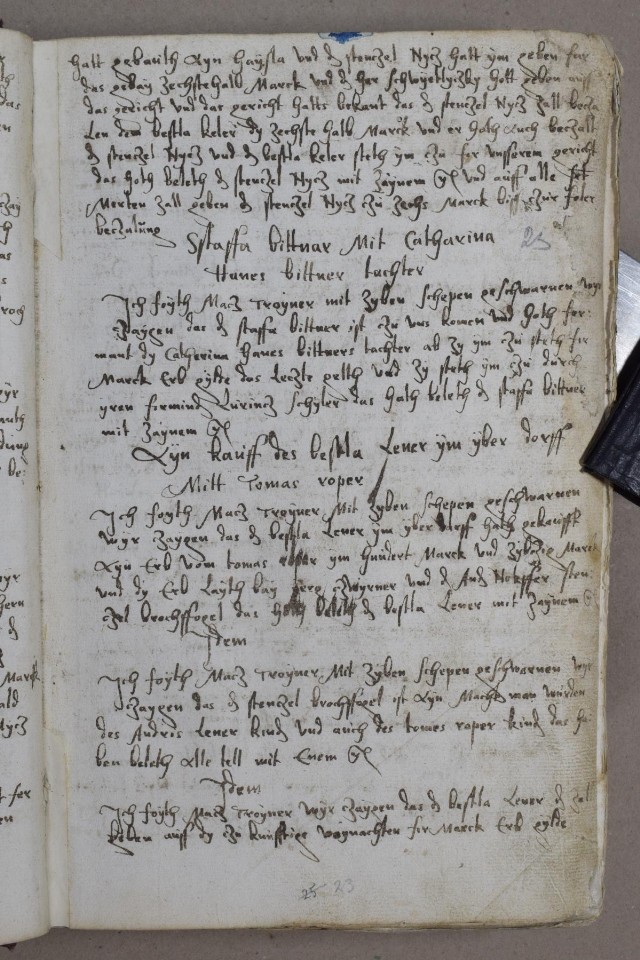 hatt gebauth Ayn haysla vnd d stenczel Nycz hatt ym geben fur
das gebay zechstehalb Marck vnd d her schwyetlyczky hott geben auff
das gericht vnd das gericht hatts bekant das d stenczel Nycz zall becza
len dem bestla keler dy zechste halb Marck vnd er hoth Auch beczalt
d stenczel Nycz vnd d bestla keler steth ym czu fer vnserem gericht
das hoth beleth d stenczel Nycz mit zaynem vnd auff alle
Merten zall geben d stenczel Nycz czu zechs Marck biss czur foler
beczalung
Sstaffa bittnar Mit Catharina 23
Hanes bittner tachter
Ich foyth Macz troyner mit zyben schepen geschwarnen wyr
Zaygen das d staffa bittner ist czu vns komen vnd hoth fer
mant dy Catherina hanes bittners tachter ab zy ym czu steth fir
Marck Erb gylde das leczte gelth vnd zy steth ym czu durch
yren firmind Lurincz schyler das hoth beleth d staffa bittner
mit zaynem
Ayn kauff des bestla Lener ym yber dorff
Mitt Tomas roper
Ich foyth Macz troyner Mit zyben schepen geschwarnen
wyr zaygen das d bestla Lener ym yber dorff hoth gekaufft
Ayn Erb vom tomas roper ym hundert Marck vnd zybczig Marck
vnd dy Erb layth bay czwyrner vnd d sten
czel brochffogel das hoth beleth d bestla Lener mit zaynem
Idem
Ich foyth Macz troyner Mit zyben schepen geschwarnen wyr
zaygen das d stenczel brochffogel ist Ayn Macht man wurden
des Andris Lener kind vnd auch des tomes roper kind das ha
ben beleth Alle tell mit Enem
Idem
Ich foyth Macz troyner wyr Zaygen das d bestla Lener d zol
heben auff dy czu kunfftige waynachten fir Marck Erb gylde
23